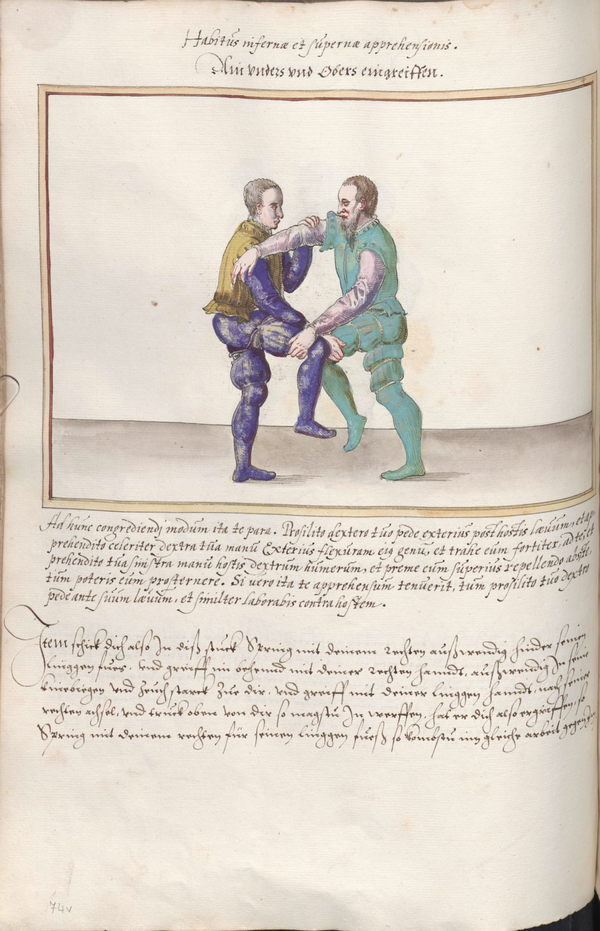 Habitus infernæ et supernæ apprehensionis.
Ain vnders vnd Obers eingreiffen.
Ad hunc congrediendj modum ita te para. Prosilito dextero tuo pede exterius post hostis læuum, et ap
prehendito celeriter dextra tua manu Exterius flexuram eiq genu, et trahe eum fortiter ad te, et
prehendito tua sinistra manu hostis dextrum humerum, et preme eum superius repellendo abste,
tum poteris eum prosternere. Si uero ita te apprehensum tenuerit, tum prosilito tuo dextro
pede ante suum læuum, et similiter laborabis contra hostem.
Item schick dich also In diß stuck Spring mit deinem rechten außwendig hinder seinen
linggen fues. Vnd greiff im behennd mit deiner rechten hanndt, außwendig In seine
kniebiegen vnd zeuch starck Zue dir, vnd greiff mit deiner linggen hanndt nach seiner
rechten achsel, vnd truck oben von dir so magstu In werffen, hat er dich also ergriffen, so
Spring mit deinem rechten für seinen linggen fueß so kombstu inn gleiche arbeit gegen
74v